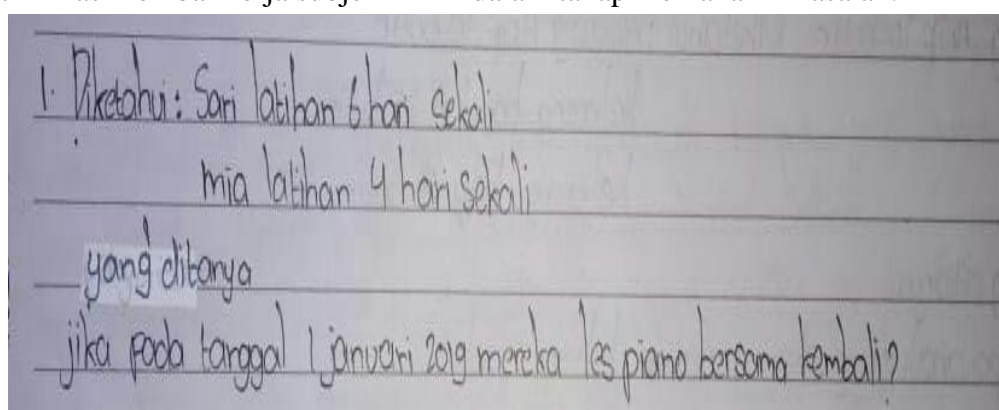 1. Diketahui: Sari latihan 6 hari sekali
mia latihan 4 hari sekali
yang ditanya
jika pada tanggal 1 januari 2019 mereka les piano bersama kembali?